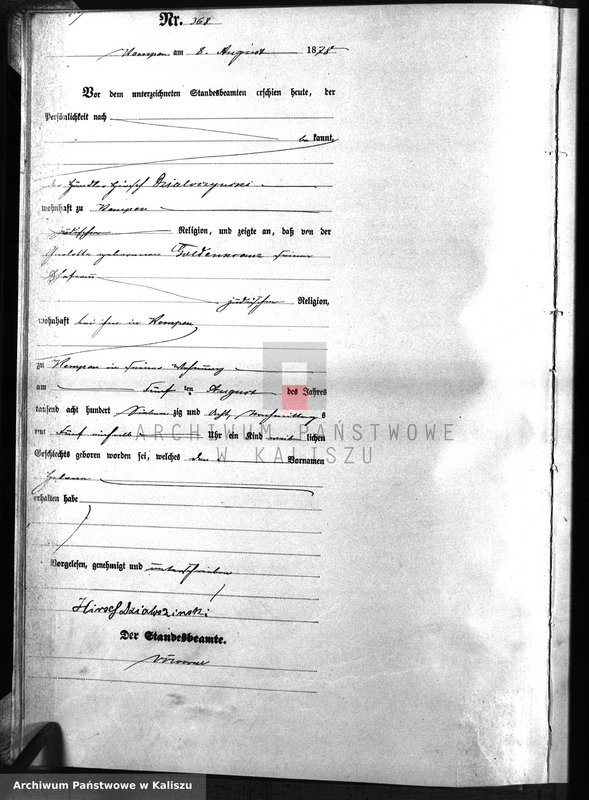 Nr. 368
Kempen am 8. August 1878
Vor dem unterzeichneten Standesbeamten erschien heute, der
Persönlichkeit nach
be kannt,
der Händler Hirsch Dzialoszynski
wohnhaft zu Kempen
jüdischer Religion, und zeigte an, daß von der
geborenen Goldenkranz seiner
Ehefrau
jüdischer Religion,
wohnhaft bei ihm in Kempen
zu Kempen in seiner Wohnung
am fünf ten August des Jahres
tausend acht hundert Sieben zig und Acht, Nachmittags
um fünf einhalb Uhr ein Kind weib lichen
Geschlechts geboren worden sei, welches den Vornamen
Helena
erhalten habe
Vorgelesen, genehmigt und unterschrieben
Hirsch Dzialoszinski
Der Standesbeamte.
ARCHIWUM PAŃSTWOWE
W KALISZU
Archiwum Państwowe w Kaliszu